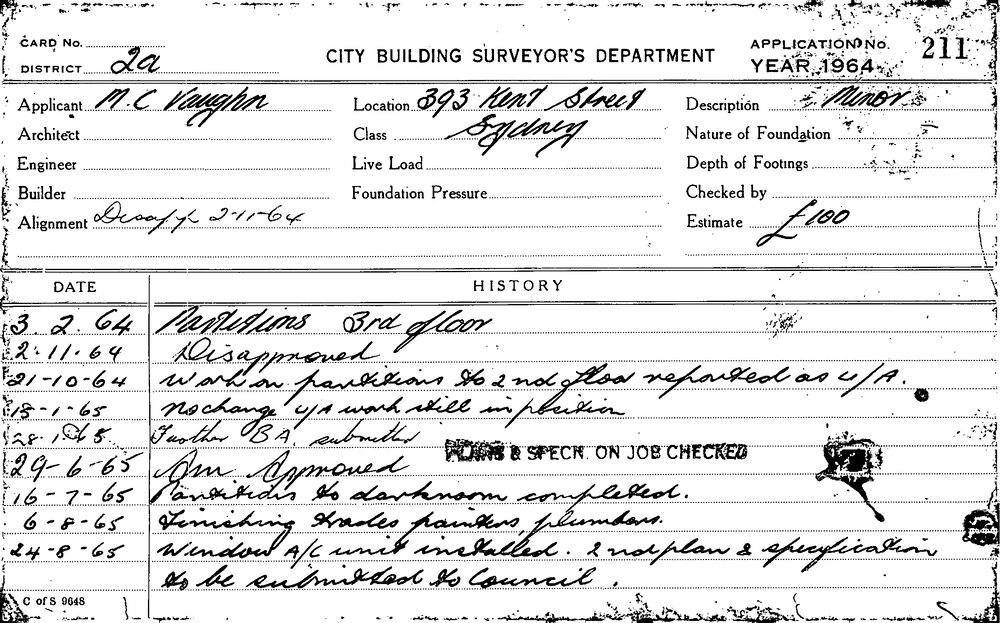 CARD No.
DISTRICT 2a
CITY BUILDING SURVEYOR'S DEPARTMENT
APPLICATION No. 211
YEAR 1964
Applicant M C Vaughn
Location 393 Kent Street
Description Minor
Architect
Class Sydney
Nature of Foundation
Engineer
Live Load
Depth of Footings
Builder
Foundation Pressure
Checked by
Alignment 2-11-64
Estimate £100
DATE HISTORY
3. 2. 64 Partitions 3rd floor
2.11.64 Disapproved
21-10-64 Work on partitions to 2nd floor reported as u/A.
18-1-65 No change u/A work still in position
28.1.65 Further B.A. submitted
29-6-65 Am Approved
PLANS & SPECN. ON JOB CHECKED
16-7-65 Partitions to darkroom completed.
6-8-65 Finishing trades painters plumbers.
24-8-65 Window A/C unit installed. 2nd plan & specification
to be submitted to Council.
C of S 9648